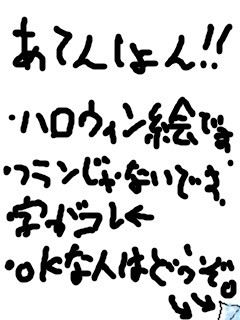 あてんしょん!!
・ハロウィン絵です
・フランじゃないです。
字がコレ←
・OKな人はどうぞ。
↓↓